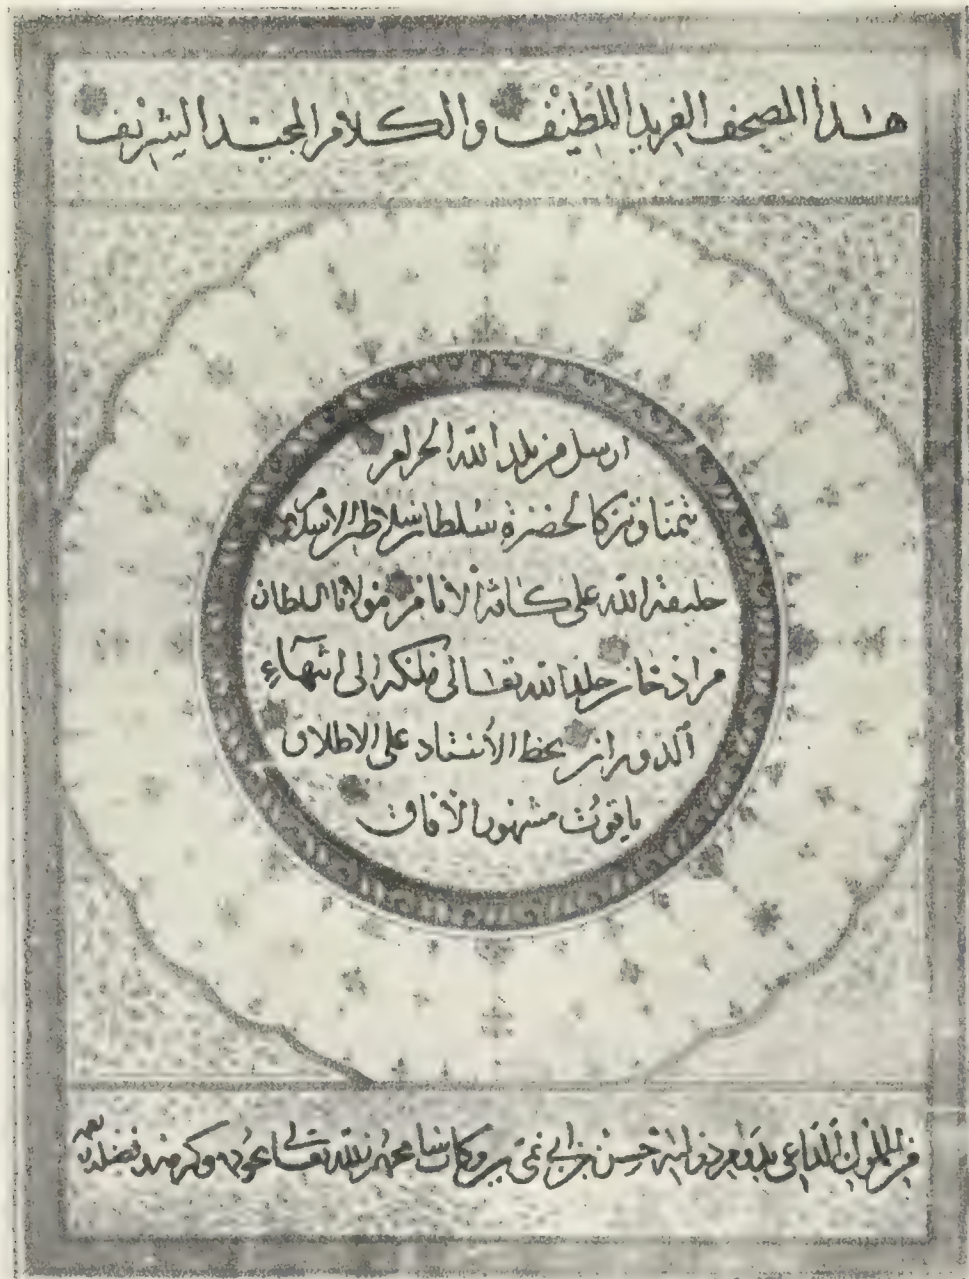 هذا المصحف الفريد اللطيف والكلام المجيد الشريف
ارسل من بلد الله الحرام
تيمنا وتبركا لحضرة سلطان سلاطين الاسلام
خليفة الله على كافة الأنام مولانا السلطان
مراد خان خلد الله تعالى ملكه الى انتهاء
الدوران بخط الأستاد على الاطلاق
ياقوت مشهور الافاق
من المملوك الداعي بدوام دولته حسن بن ابي نمي بن بركات تعالى بجوده وكرمه